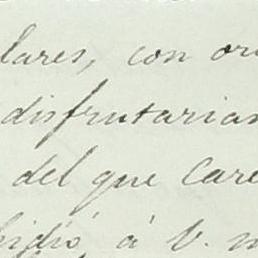 lares, con or
disfrutarian
del que care
á V. m